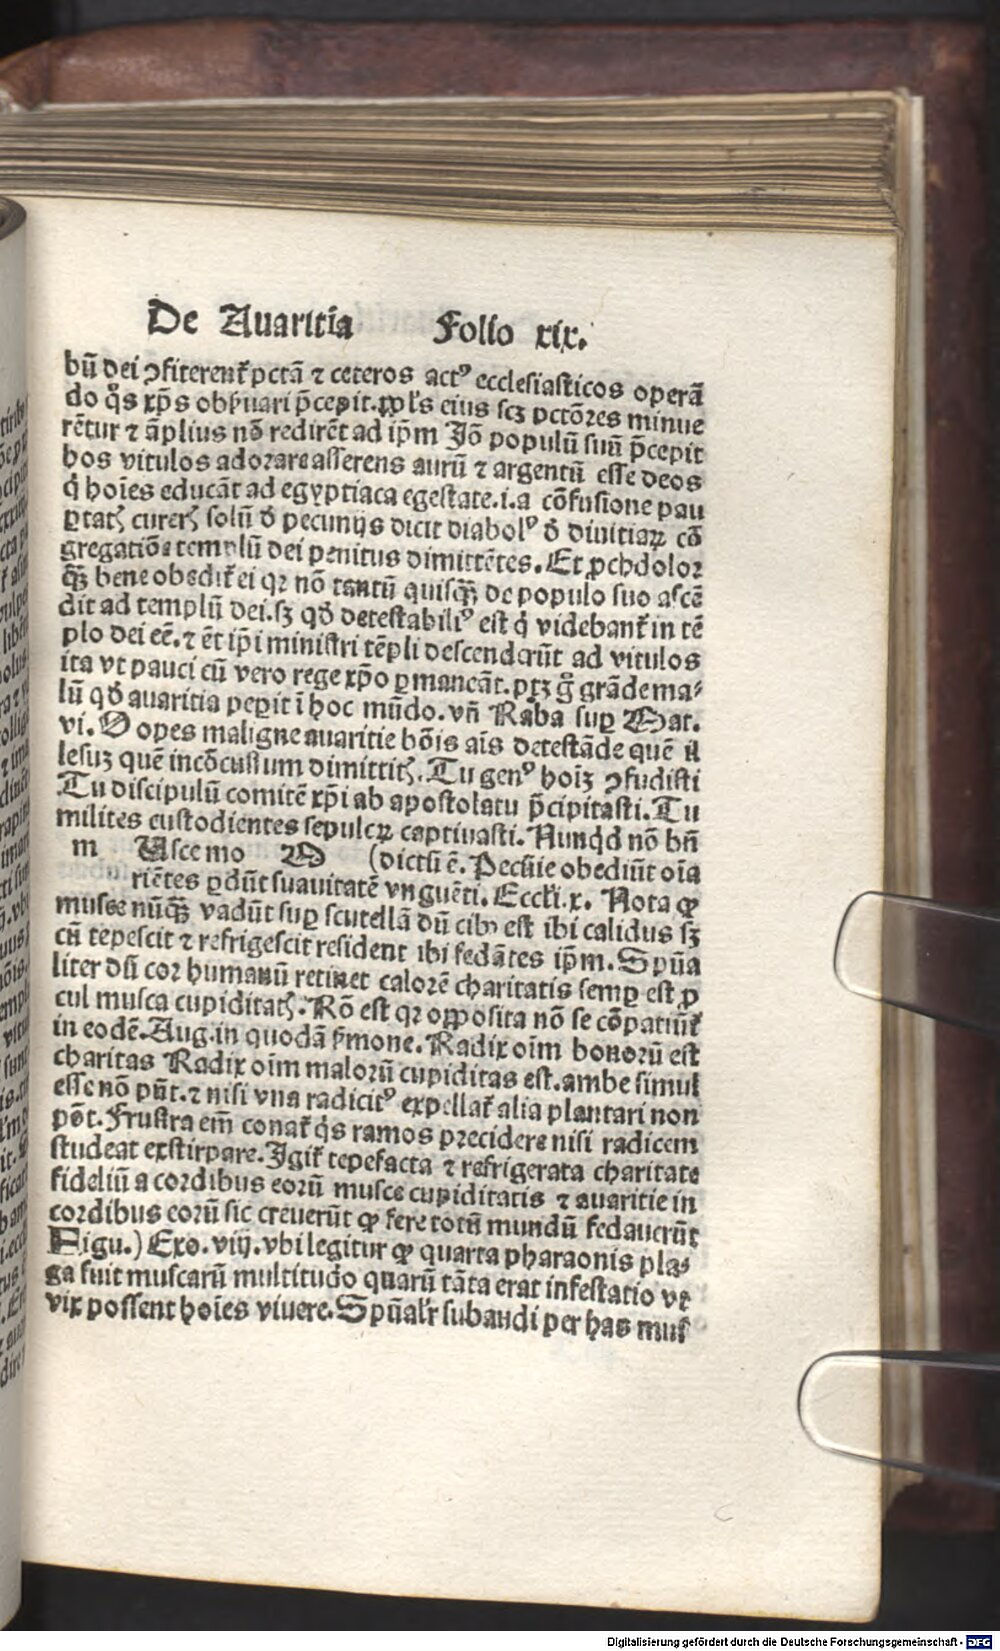 De Auaritia Folio xix.
bū dei ꝯfiterent᷑ pctā ⁊ ceteros actꝰ ecclesiasticos operā
do q̊s xp̄s obẜuari p̄cepit. ꝓpl's eius scꝫ pctōres minue
rētur ⁊ āplius nō redirēt ad ip̄m Jō populū suū p̄cepit
hos vitulos adorare asserens aurū ⁊ argentū esse deos
q̇ hoīes educāt ad egyptiaca egestate. i. a cōfusione pau
ꝑtatꝭ curerꝭ solū ꝺ̄ pecunijs dicit diabolꝰ ꝺ̄ diuitiaꝝ cō
gregatiōe templū dei penitus dimittētes. Et ꝓchdolor
q̄ꝫ bene obedit᷑ ei qꝛ nō tantū quisq̄ꝫ de populo suo ascē
dit ad templū dei. sꝫ qꝺ̄ detestabiliꝰ est q̇ videbant᷑ in tē
plo dei eē. ⁊ ēt ip̄i ministri tēpli descenderūt ad vitulos
ita vt pauci cū vero rege xp̄o ꝑmaneāt. ptꝫ g̊ grāde ma⸗
lū qꝺ̄ auaritia peꝑit ī hoc mūdo. vn̄ Raba suꝑ Mat.
vi. O opes maligne auaritie hōis aīs detestāde quē il
lesuꝫ quē incōcussum dimittitꝭ. Tu genꝰ hoīꝫ ꝯfudisti
Tu discipulū comitē xp̄i ab apostolatu p̄cipitasti. Tu
milites custodientes sepulcꝝ captiuasti. Nunqd nō bn̄
m Usce mo M (dictū ē. Pecūie obediūt oīa
riētes ꝑdūt suauitatē vnguēti. Eccli. x. Nota ꝙ
musce nūq̄ꝫ vadūt suꝑ scutellā dū cibꝰ est ibi calidus sꝫ
cū tepescit ⁊ refrigescit resident ibi fedātes ip̄m. Spūa
liter dū cor humanū retinet calorē charitatis semꝑ est ꝓ
cul musca cupiditatꝭ. Rō est qꝛ opposita nō se cōpatiūt᷑
in eodē. Aug. in quodā ẜmone. Radix oīm bonorū est
charitas Radix oīm malorū cupiditas est. ambe simul
esse nō pn̄t. ⁊ nisi vna radicitꝰ expellat᷑ alia plantari non
pōt. Frustra em̄ conat᷑ q̇s ramos precidere nisi radicem
studeat exstirpare. Igit᷑ tepefacta ⁊ refrigerata charitate
fideliū a cordibus eorū musce cupiditatis ⁊ auaritie in
cordibus eorū sic creuerūt ꝙ fere totū mundū fedauerūt
Figu.) Exo. viij. vbi legitur ꝙ quarta pharaonis pla⸗
ga fuit muscarū multitudo quarū tāta erat infestatio vt
vix possent hoīes viuere. Spūalr̄ subaudi per has mus
Digitalisierung gefördert durch die Deutsche Forschungsgemeinschaft - DFG